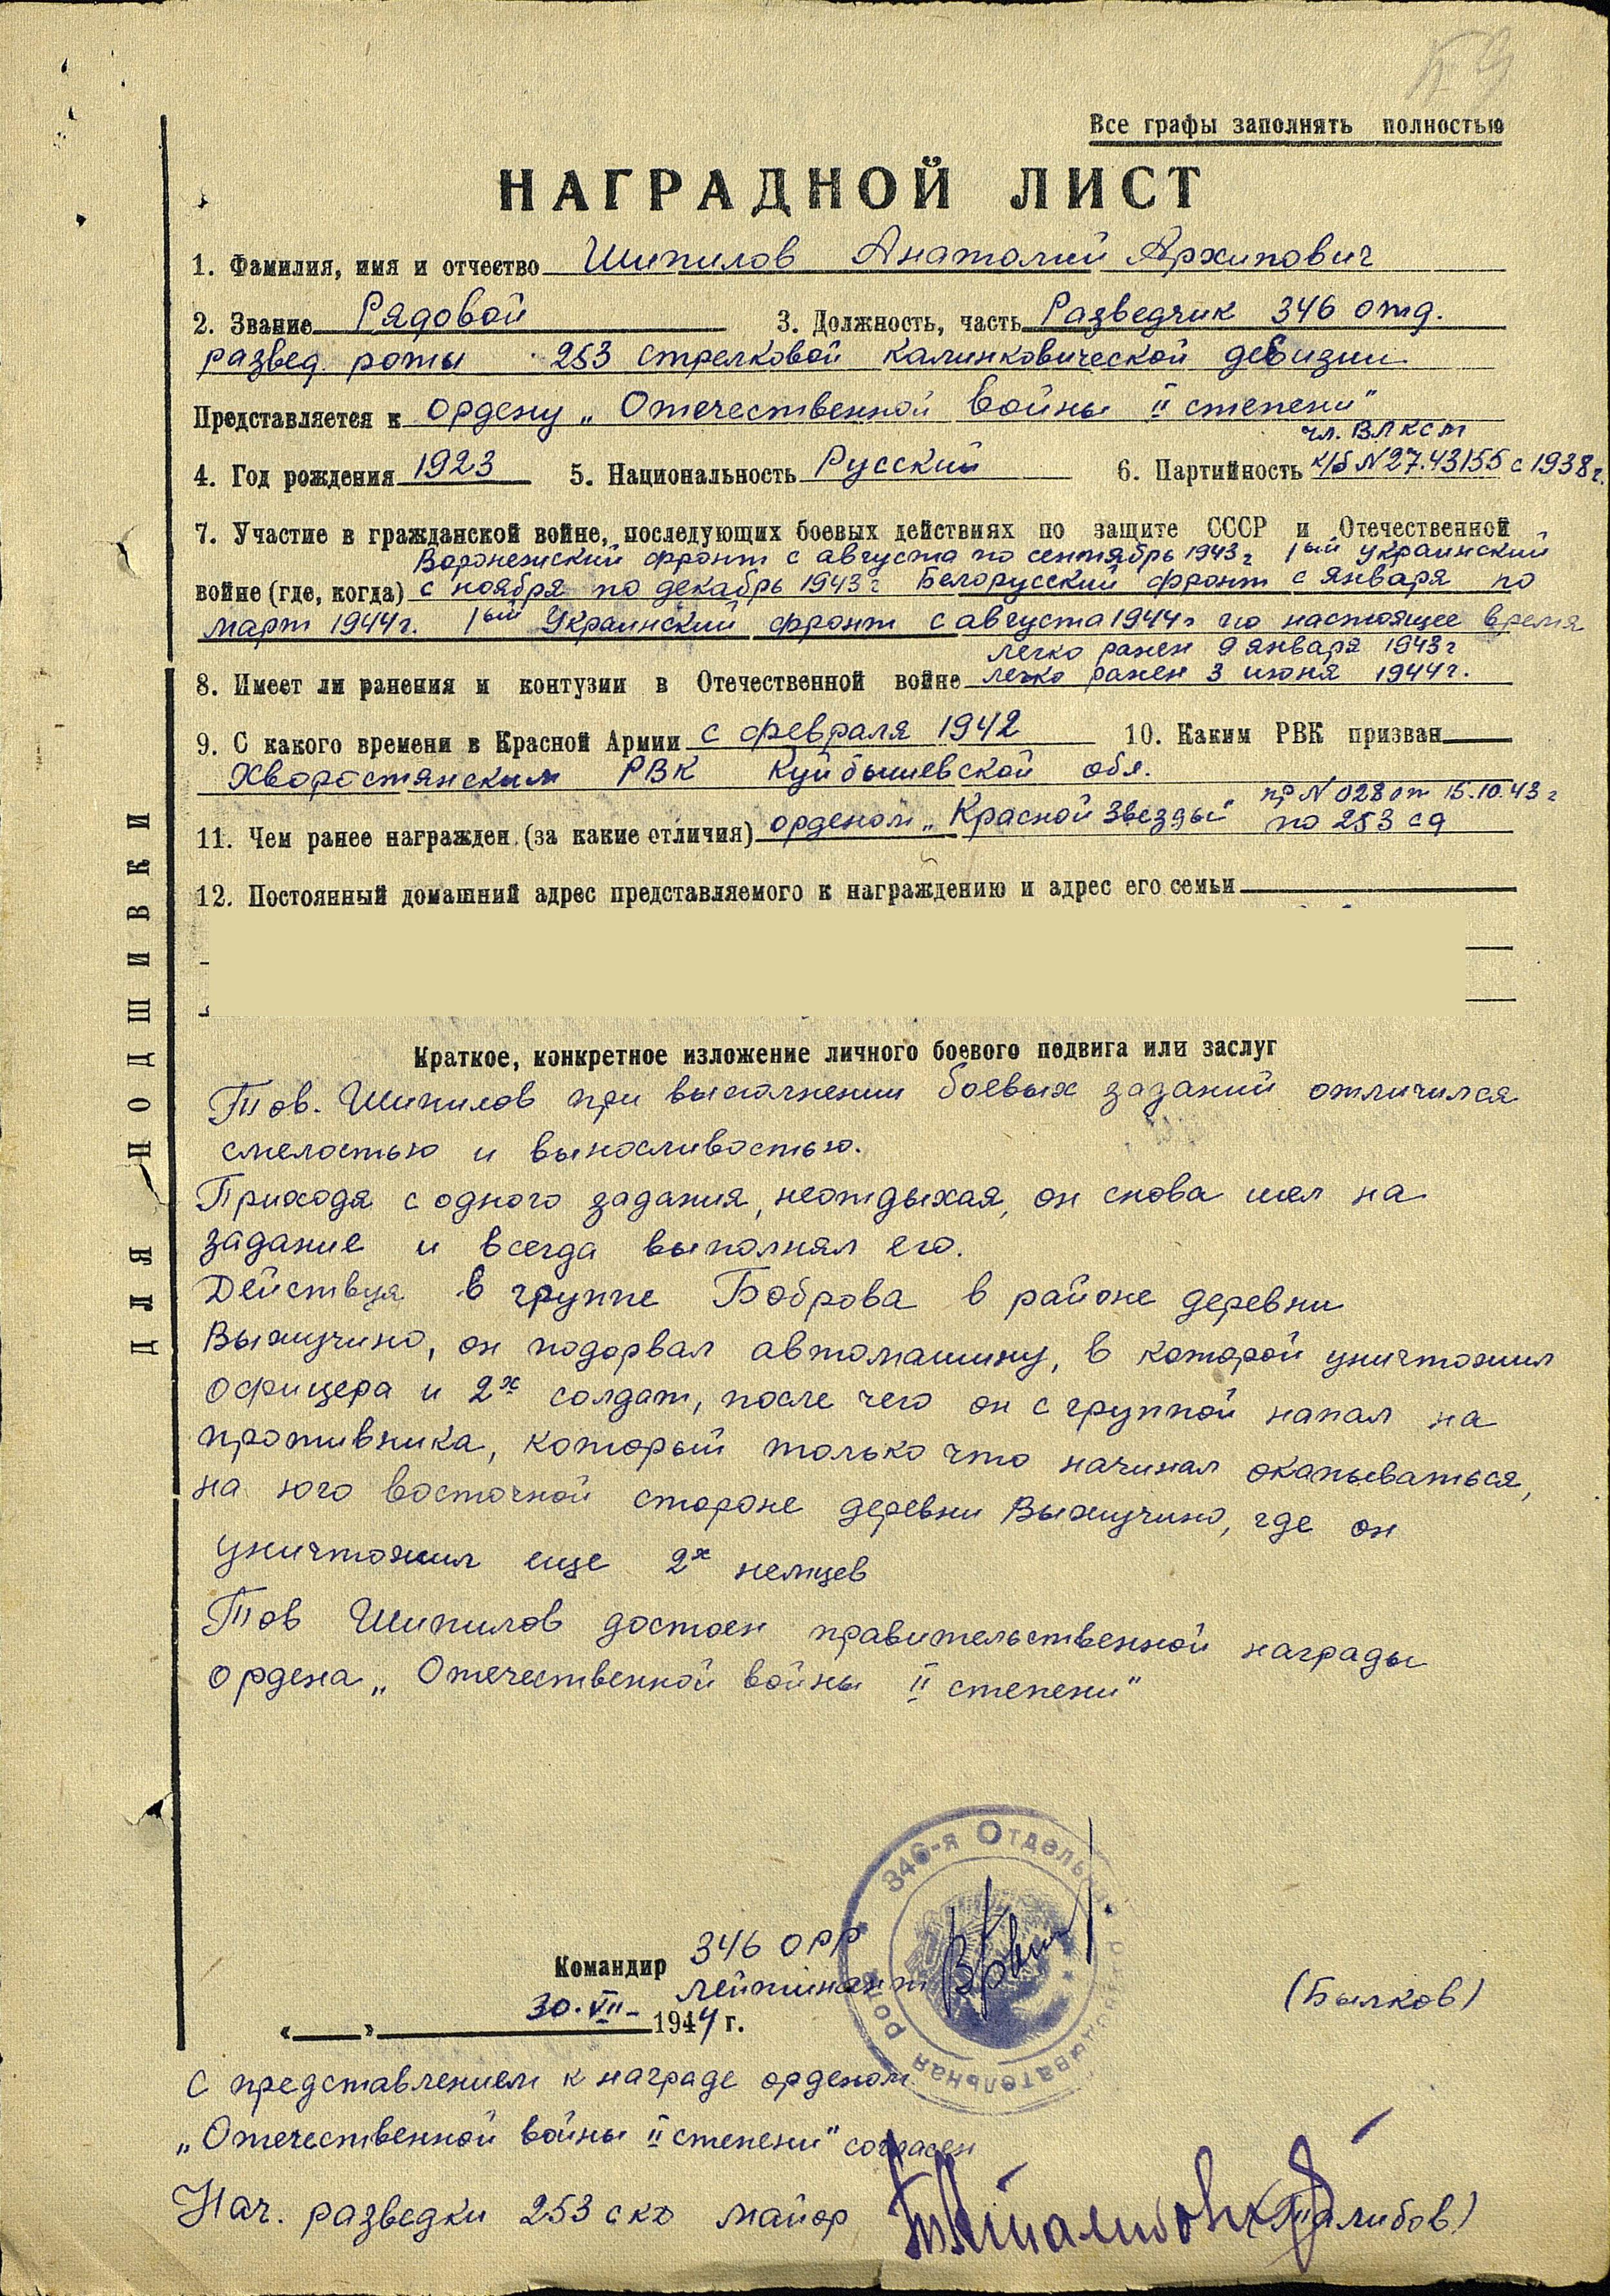 Все графы заполнять полностью
НАГРАДНОЙ ЛИСТ
1. Фамилия, имя и отчество Шипилов Анатолий Архипович
2. Звание Рядовой 3. Должность, часть Разведчик 346 отд.
развед. роты 253 стрелковой калинковической девизии
Представляется к ордену „Отечественной войны II степени"
чл. ВЛКСМ
4. Год рождения 1923 5. Национальность Русский 6. Партийность к/б N27.43155 с 1938 г.
7. Участие в гражданской войне, последующих боевых действиях по защите СССР и Отечественной
Воронежский фронт с августа по сентябрь 1943г 1ый украинский
войне (где, когда) с ноября по декабрь 1943г Белорусский фронт с января по
март 1944г. 1ый Украинский фронт с августа 1944г по настоящее время
легко ранен 9 января 1943г
8. Имеет ли ранения и контузии в Отечественной войне легко ранен 3 июня 1944г.
9. С какого времени в Красной Армии с февраля 1942 10. Каким РВК призван
Хворостянским РВК Куйбышевской обл.
пр N 028 от 15.10.43 г
11. Чем ранее награжден (за какие отличия) орденом „Красной Звезды" по 253 сд
12. Постоянный домашний адрес представляемого к награждению и адрес его семьи
Краткое, конкретное изложение личного боевого подвига или заслуг
Тов. Шипилов при выполнении боевых заданий отличился
смелостью и выносливостью.
Приходя с одного задания, неотдыхая, он снова шел на
задание и всегда выполнял его.
Действуя в группе Боброва в районе деревни
Выжучино, он подорвал автомашину, в которой уничтожил
офицера и 2х солдат, после чего он с группой напал на
противника, который только что начинал окапываться,
на юго восточной стороне деревни Выжучино, где он
уничтожил еще 2х немцев
Тов Шипилов достоен правительственной награды
ордена „Отечественной войны II степени"
Командир 346 ОРР
лейтинант (Былков)
30.VII- 1944 г.
346-я Отдельная разведывательная рота
с представлением к награде орденом
„Отечественной войны II степени" согласен
Нач. разведки 253 скд майор (Талибов)
ДЛЯ ПОДШИВКИ